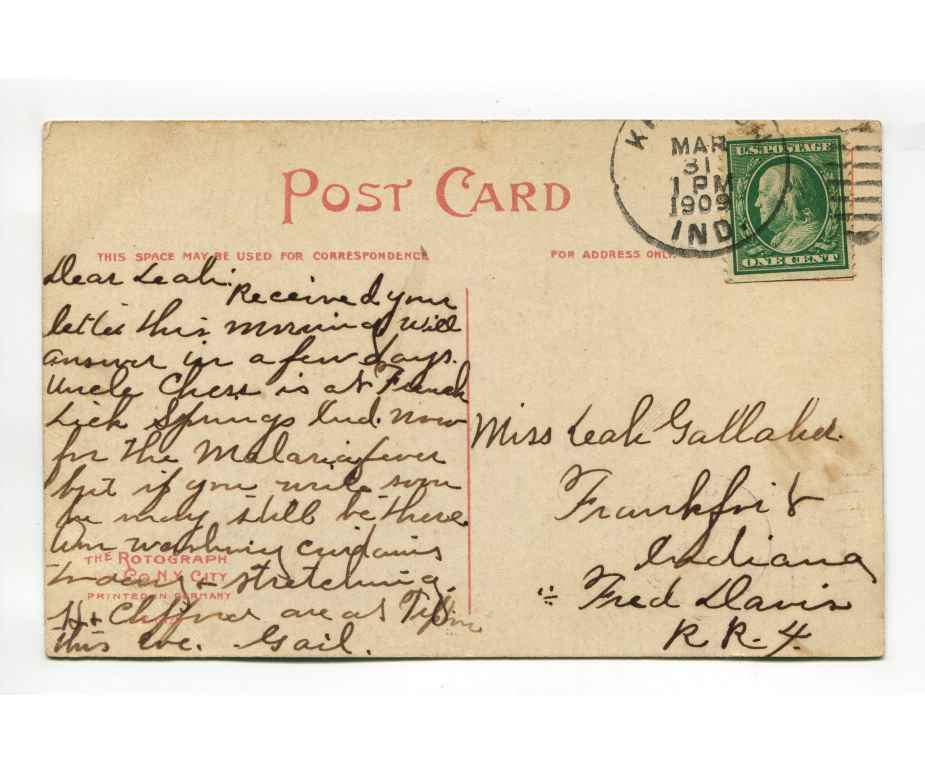 POST CARD
THIS SPACE MAY BE USED FOR CORRESPONDENCE
FOR ADDRESS ONLY.
MAR
31
1 PM
1909
IND.
U.S. POSTAGE
ONE CENT
Dear Leah.
Received your
letter this morning will
answer in a few days.
Uncle Ches is at French
Lick Springs Ind. now
for the Malaria fever
but if you write soon
he may still be there
Am washing curtains
today & stretching
H & Clifford are at
this eve. Gail.
THE ROTOGRAPH
CO. N.Y. CITY
PRINTED IN GERMANY
Miss Leah Gallaher.
Frankfort
Indiana
℅ Fred Davis
R R. 4.